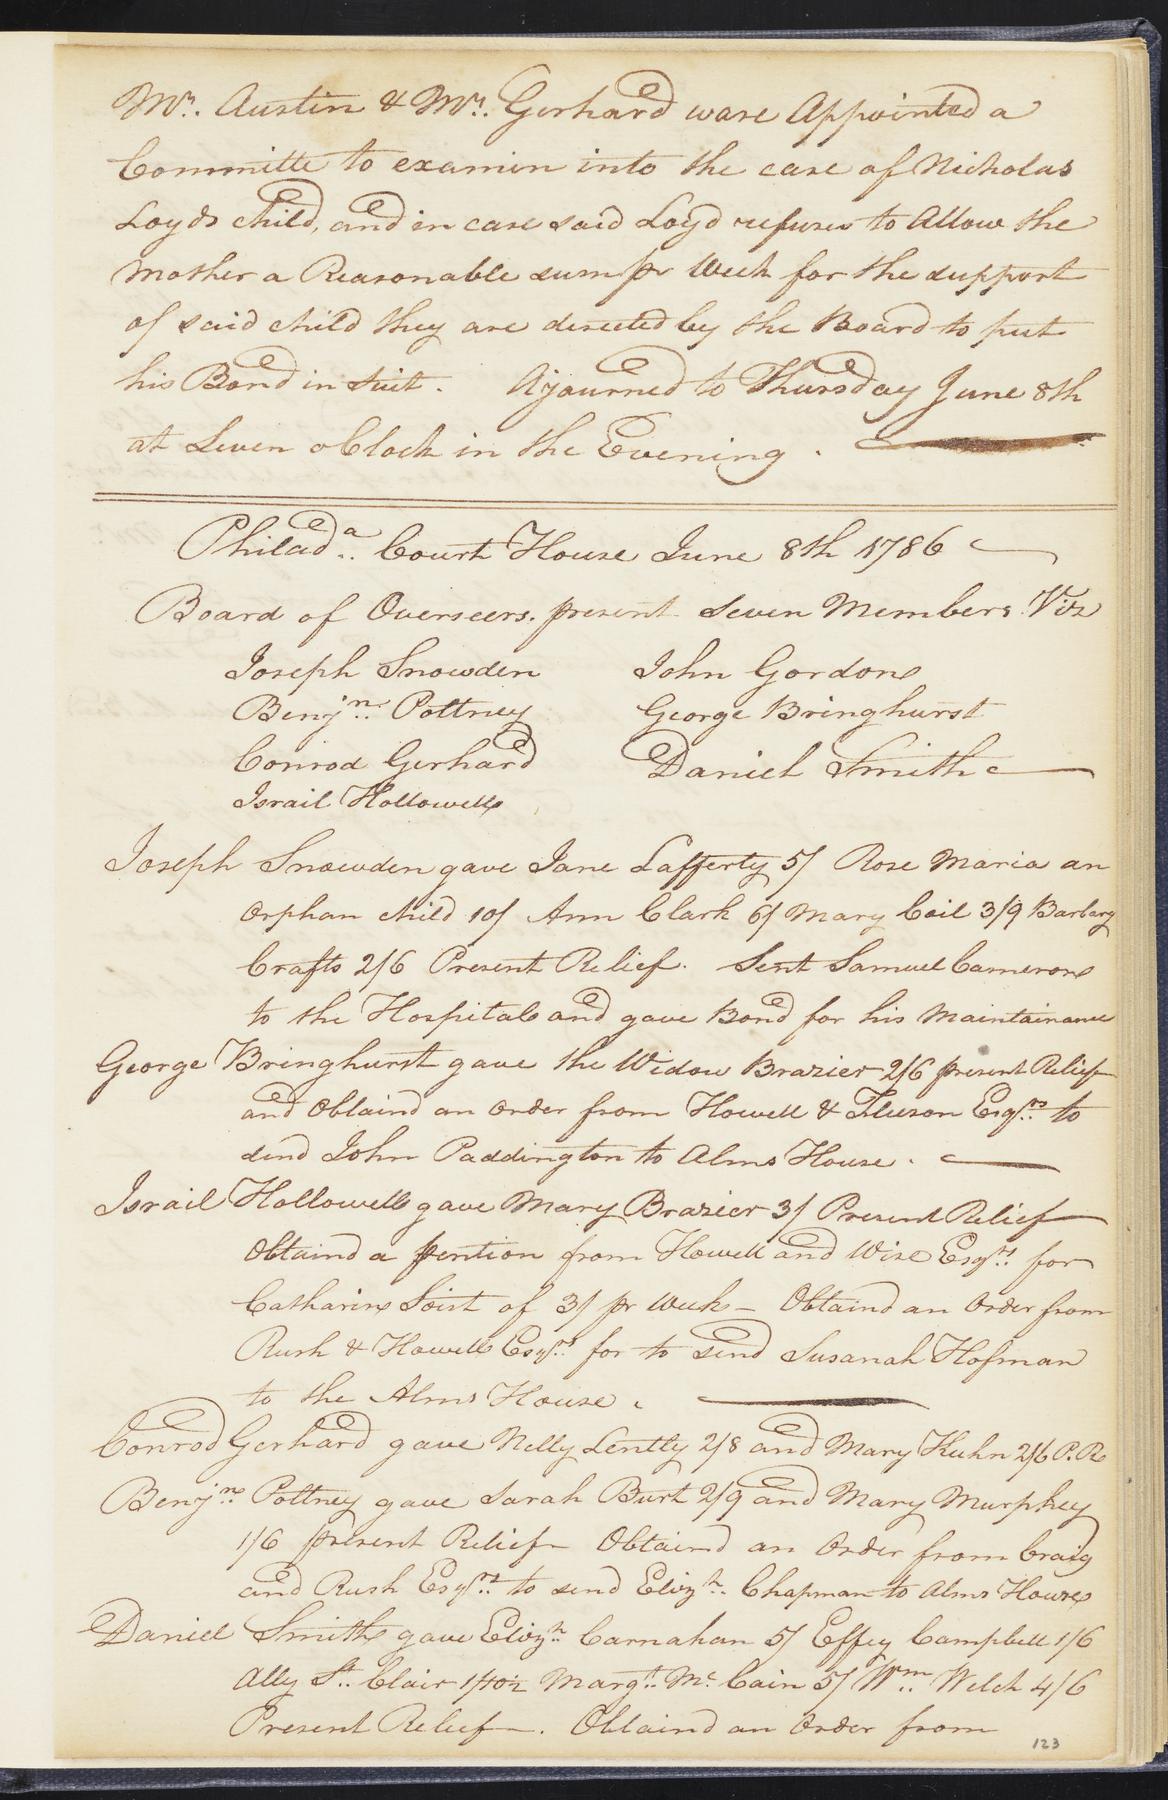 Mr. Austin & Mr. Gerhard ware Appointed a
Committe to examin into the case of Nicholas
Loyds child, and in case said Loyd refuses to Allow the
Mother a Reasonable sum pr Week for the support
of said child they are directed by the Board to put
his Bond in Suit. Ajourned to Thursday June 8th
at Seven oClock in the Evening.
Philada. Court House June 8th 1786
Board of Overseers. present Seven Members Viz
Joseph Snowden John Gordon
Benjn. Poltney George Bringhurst
Conrod Gerhard Daniel Smith
Israil Hollowell
Joseph Snowden gave Jane Lafferty 5/ Rose Maria an
Orphan child 10/ Ann Clark 6/ Mary Coil 3/9 Barbary
Crafts 2/6 Present Relief. Sent Samuel Cameron
to the Hospital and gave Bond for his Maintainance
George Bringhurst gave the Widow Brazier 2/6 present Relief
and Obtaind an Order from Howell & Esqrs. to
send John Paddington to Alms House.
Israil Hollowell gave Mary Brazier 3/ Present Relief
Obtaind a pention from Howell and Wise Esqrs. for
Catharine Soist of 3/ pr Week - Obtaind an Order from
Rush & Howell Esqrs. for to send Susanah Hofman
to the Alms House.
Conrod Gerhard gave Nelly Lently 2/8 and Mary Kuhn 2/6 P.R
Benjn. Poltney gave Sarah Burt 2/9 and Mary Murphey
1/6 present Relief Obtaind an Order from Craig
and Rush Esqrs. to send Elizh. Chapman to Alms House
Daniel Smith gave Elizh. Carnahan 5/ Effey Campbell 1/6
Ally St. Clair 1/10½ Margt. Mc Cain 5/ Wm. Welch 4/6
Present Relief. Obtaind an Order from
123